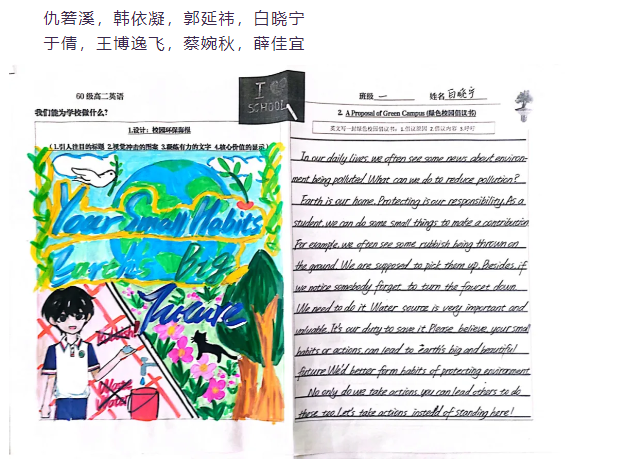 仇箬溪，韩依凝，郭延祎，白晓宁
于倩，王博逸飞，蔡婉秋，薛佳宜
60 级高二英语
我们能为学校做什么?
1.设计：校园环保海报
( 1.引人注目的标题 2.视觉冲击的图案 3.凝练有力的文字 4.核心价值的显示)
Your Small Habits
Earth's Big
Future
I
SCHOOL
班级 一 姓名 白晓宁
2. A Proposal of Green Campus (绿色校园倡议书)
英文写一封绿色校园倡议书：1.倡议原因 2.倡议内容 3.呼吁
In our daily lives, we often see some news about environ-
ment being polluted. What can we do to reduce pollution?
Earth is our home. Protecting is our responsibility. As a
student, we can do some small things to make a contribution.
For example, we often see some rubbish being thrown on
the ground. We are supposed to pick them up. Besides, if
we notice somebody forget to turn the faucet down.
We need to do it. Water source is very important and
valuable. It's our duty to save it. Please believe your small
habits or actions can lead to Earth's big and beautiful
future. We'd better form habits of protecting environment.
No only do we take actions, you can lead others to do
these too. Let's take actions instead of standing here!